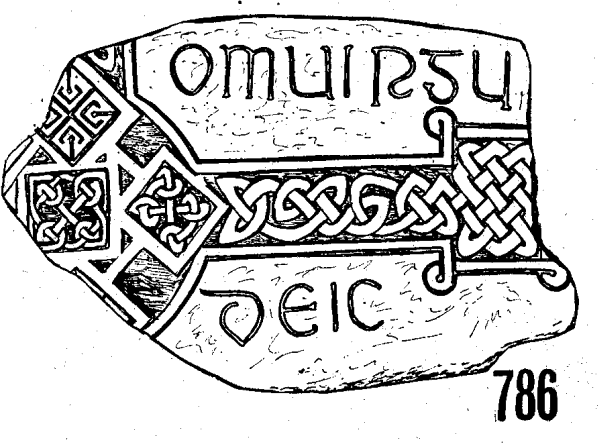 OMUIRGU
DEIC
786